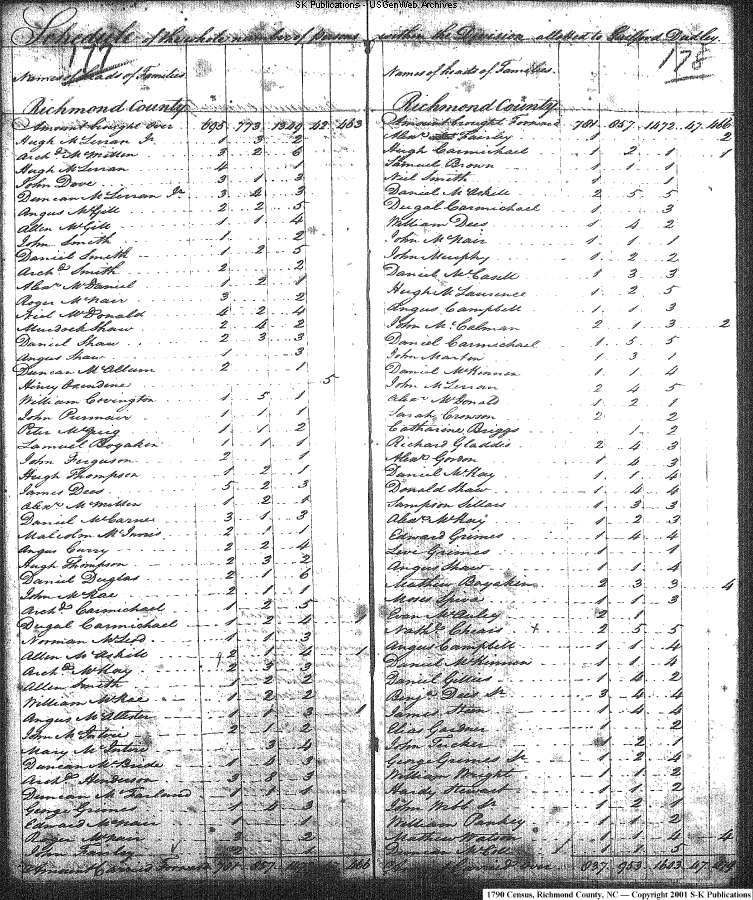 SK Publications - USGenWeb Archives
Schedule of the whole number of Persons within the Division allotted to Guilford Dudley
177
Names of heads of Families
Richmond County
Amount brought over 695 773 1349 42 463
Hugh McLerran Jr 1 3 2
Archd McMillen 3 2 6
Hugh McLerran 4 1
John Dove 3 1 3
Duncan McLerran Jr 3 4 3
Angus McGill 2 2 5
Allen McGill 1 1 4
John Smith 1 2
Daniel Smith 1 2 5
Archd Smith 2 2
Alexr McDaniel 1 2 1
Roger McNair 3 2
Neil McDonald 4 2 4
Murdock Shaw 2 4 2
Daniel Shaw 2 3 3
Angus Shaw 1 3
Duncan McCallum 2 1
Henry Oxendine 5
William Covington 1 5 1
John Purmair 1 1 1
Peter McGrig 1 1 2
Samuel Bogaken 1 1 1
John Ferguson 2 1
Hugh Thompson 1 2 1
James Dees 5 2 3
Alexr McMillen 1 2 1
Daniel McCarne 3 1 3
Malcolm McInnis 2 1 1
Angus Curry 2 2 4
Hugh Thompson 2 3 2
Daniel Duglas 2 1 6
John McRae 2 1 1
Archd Carmichael 1 2 5
Dugal Carmichael 1 2 4 1
Norman McLeod 1 1 3
Allen McAskill 2 1 4 1
Archd McKay 2 3 3
Allen Smith 1 2 2
William McRae 1 2 2
Angus McAllester 1 1 3 1
John McIntire 2 1 2
Mary McIntire 3 4
Duncan McBride 1 4 3
Archd Henderson 3 8 3
Duncan McFarland 1 1 1
George Grimes 1 4 3
Edward McNair 1 1
Roger McNair 2 2
John Fairley 2 1
Amount Carried Forward 781 857 1472 466
178
Names of heads of Families
Richmond County
Amount brought Forward 781 857 1472 47 466
Alexr Fairley 1 2
Hugh Carmichael 1 2 1 1
Samuel Brown 1 1
Neil Smith 1 1
Daniel McAskill 2 5 5
Dugal Carmichael 1 3
William Dees 1 4 2
John McNair 1 1 1
John Murphy 1 2 2
Daniel McCasell 1 3 3
Hugh McLaurence 1 2 5
Angus Campbell 1 1 3
John McCalman 2 1 3 2
Daniel Carmichael 1 5 5
John Marton 1 3 1
Daniel McKinnon 1 1 4
John McLerran 2 4 5
Alexr McDonald 1 2 1
Sarah Crowson 2 2
Catharine Briggs 1 2
Richard Gladdis 2 4 3
Alexr Gordon 1 4 3
Daniel McKay 1 1 4
Donald Shaw 1 4 4
Sampson Sellars 1 3 3
Alexr McKay 1 2 3
Edward Grimes 1 4 4
Levi Grimes 1 1
Angus Shaw 1 1 4
Mathew Bogaken 2 3 3 4
Moses Spiva 1 1 3
Evan McAuley 2 1
Nathl Cheairs 2 5 5
Angus Campbell 1 1 4
Daniel McKinnon 1 1 4
Daniel Gillies 1 4 2
Benjn Dees Sr 3 4 4
James Steen 1 4 4
Elias Gardner 1 2
John Tucker 1 2 1
George Grimes Sr 1 2 4
William Wright 1 1 2
Hardy Stewart 1 1 2
John Webb Sr 1 2 1
William Pankey 1 1 2
Mathew Watson 1 1 4 4
Duncan McCall 1 1 5
Amount Carried over 837 953 1603 47
1790 Census, Richmond County, NC — Copyright 2001 S-K Publications